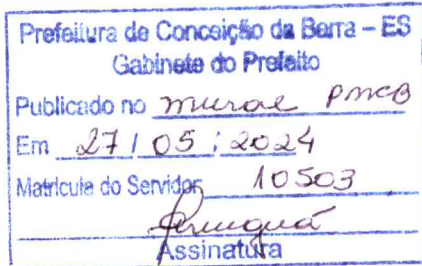 Prefeitura de Conceição da Barra – ES
Gabinete do Prefeito
Publicado no mural PMCB
Em 27 / 05 / 2024
Matricula do Servidor 10503
Assinatura